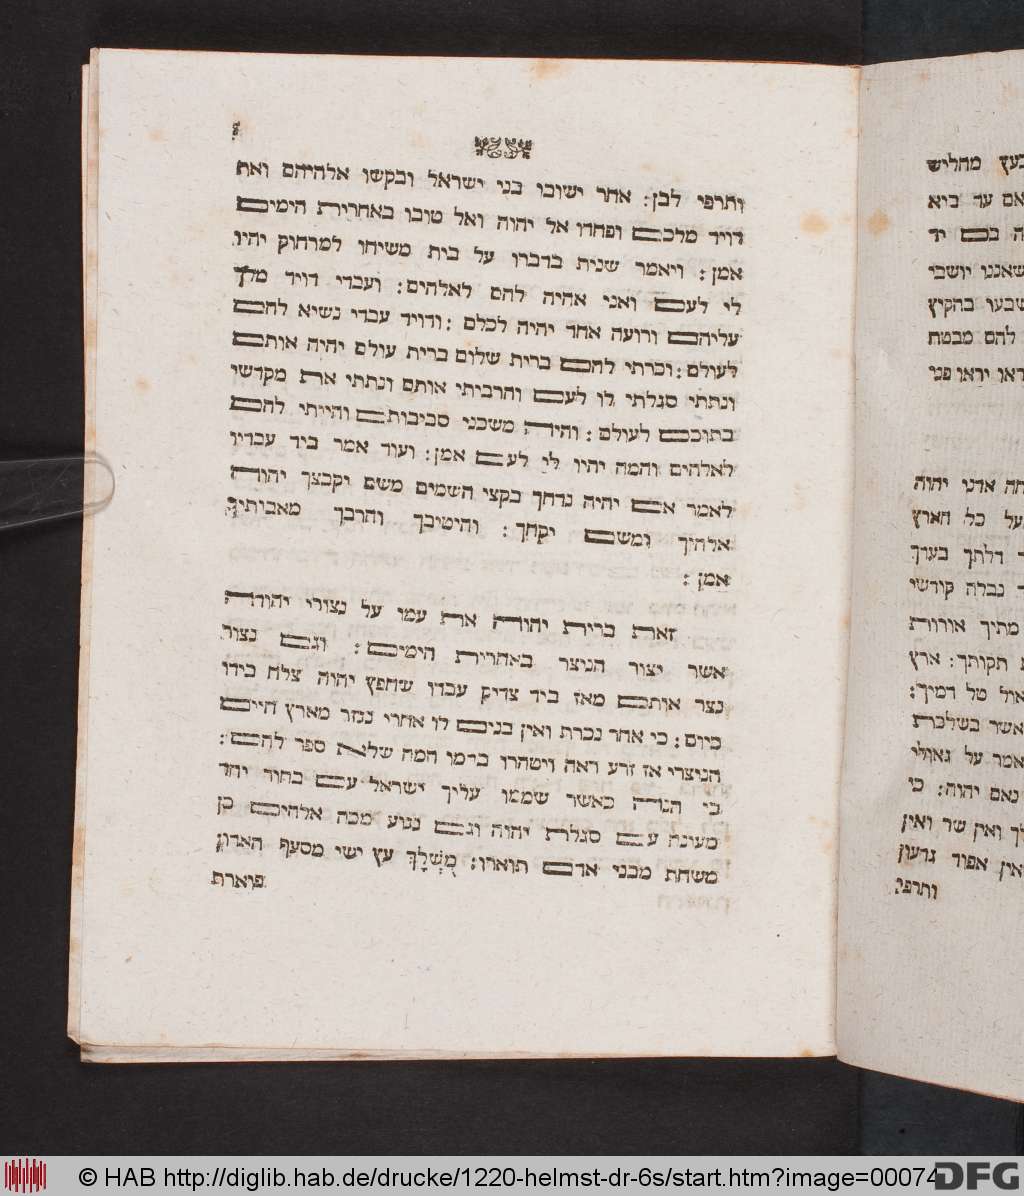 ותרפי לבן: אחר ישובו בני ישראל ובקשו אלהיהם ואת
דויד מלכם ופחדו אל יהוה ואל טובו באחרית הימים
אמן: ויאמר שנית בדברו על בית משיחו למרחוק יהיו
לי לעם ואני אהיה להם לאלהים: ועבדי דויד מלך
עליהם ורועה אחד יהיה לכלם: ודויד עבדי נשיא להם
לעולם: וכרתי להם ברית שלום ברית עולם יהיה אותם
ונתתי סגלתי לו לעם והרביתי אותם ונתתי את מקדשי
בתוכם לעולם: והיה משכני סביבותם והייתי להם
לאלהים והמה יהיו לי לעם אמן: ועוד אמר ביד עבדיו
לאמר אם יהיה נדחך בקצי השמים משם יקבצך יהוה
אלהיך ומשם יקחך: והיטיבך והרבך מאבותיך
אמן:
זאת ברית יהוה את עמו על נצורי יהודה
אשר יצור הניצר באחרית הימים: וגם נצור
נצר אותם מאז ביד צדיק עבדו שחפץ יהוה צלח בידו
כיום: כי אחר נכרת ואין בנים לו אחרי נגזר מארץ חיים
הניצרי אז זרע ראה ויטהרו בדמו המה שלא ספר להם:
כי הנה כאשר שממו עליך ישראל עם בחור יחד
מעונה עם סגלת יהוה וגם נגוע מכה אלהים כן
משחת מבני אדם תוארו: מָשְׁלָךְ עץ ישי מסעף האדון
פוארת
בעץ מחליש
אם עד ביא
ה בם יד
שאננו יושבי
שבעו בהקיץ
להם מבטח
ראו יראו פני
חה אדני יהוה
על כל הארץ
דלתך בערך
נברה קורשי
מתיך אורות
תקותך: ארץ
אול טל דמיך:
אשר בשלכת
אמר על גאולי
נאם יהוה: כי
לך ואין שר ואין
אין אפוד גדעון
ותרפי
© HAB http://diglib.hab.de/drucke/1220-helmst-dr-6s/start.htm?image=00074
DFG